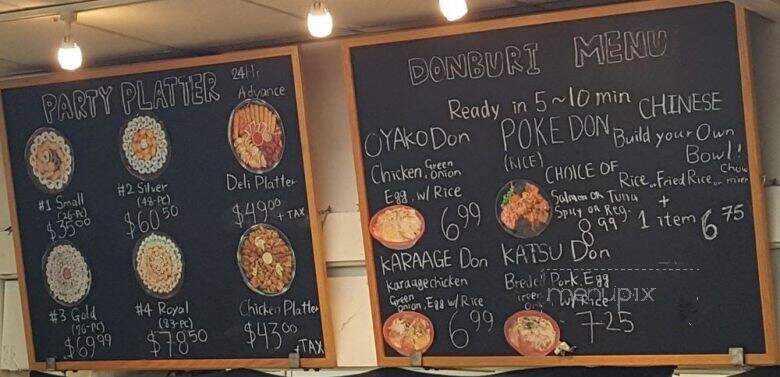 PARTY PLATTER
24Hr
Advance
#1 Small
(26-PC)
$35.00
#2 Silver
(48-PC)
$60.50
Deli Platter
$49.00 + TAX
#3 Gold
(76-PC)
$69.99
#4 Royal
(83-PC)
$78.50
Chicken Platter
$43.00
+ TAX
DONBURI MENU
Ready in 5~10 min
OYAKO Don
Chicken, Green
onion
Egg, w/ Rice
6.99
POKE DON
(RICE)
CHOICE OF
Salmon or Tuna
Spicy or Reg.
8.99
CHINESE
Build your Own
Bowl!
Rice or Fried Rice or Chow
mien
+
1 item 6.75
KARAAGE Don
Karaage chicken
Green
onion, Egg w/ Rice
6.99
KATSU Don
Pork, Egg
w/ Rice
7.25
menupix